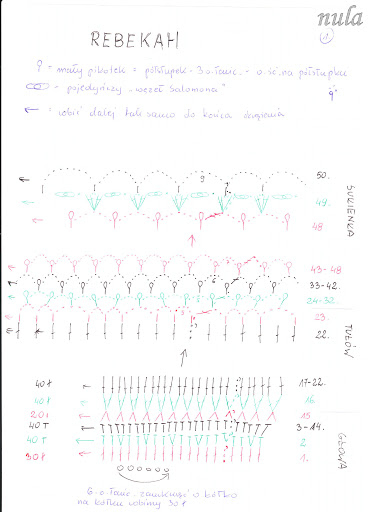 nula
REBEKAH
1
♀ - mały pikotek = półsłupek - 3 o. łańc. - o. ść. na półsłupku
- pojedynczy „węzeł Salomona"
← - robić dalej tak samo do końca okrążenia
9
50.
49.
48
SUKIENKA
43-48
33-42.
24-32.
23.
22.
TUŁÓW
40 ł 17-22.
40 ł 16
20 ł 15
40 T 3-14.
40 T 2
30 ł 1.
GŁOWA
6 o. łańc. zamknąć o. kółko
na kółku robimy 30 ł